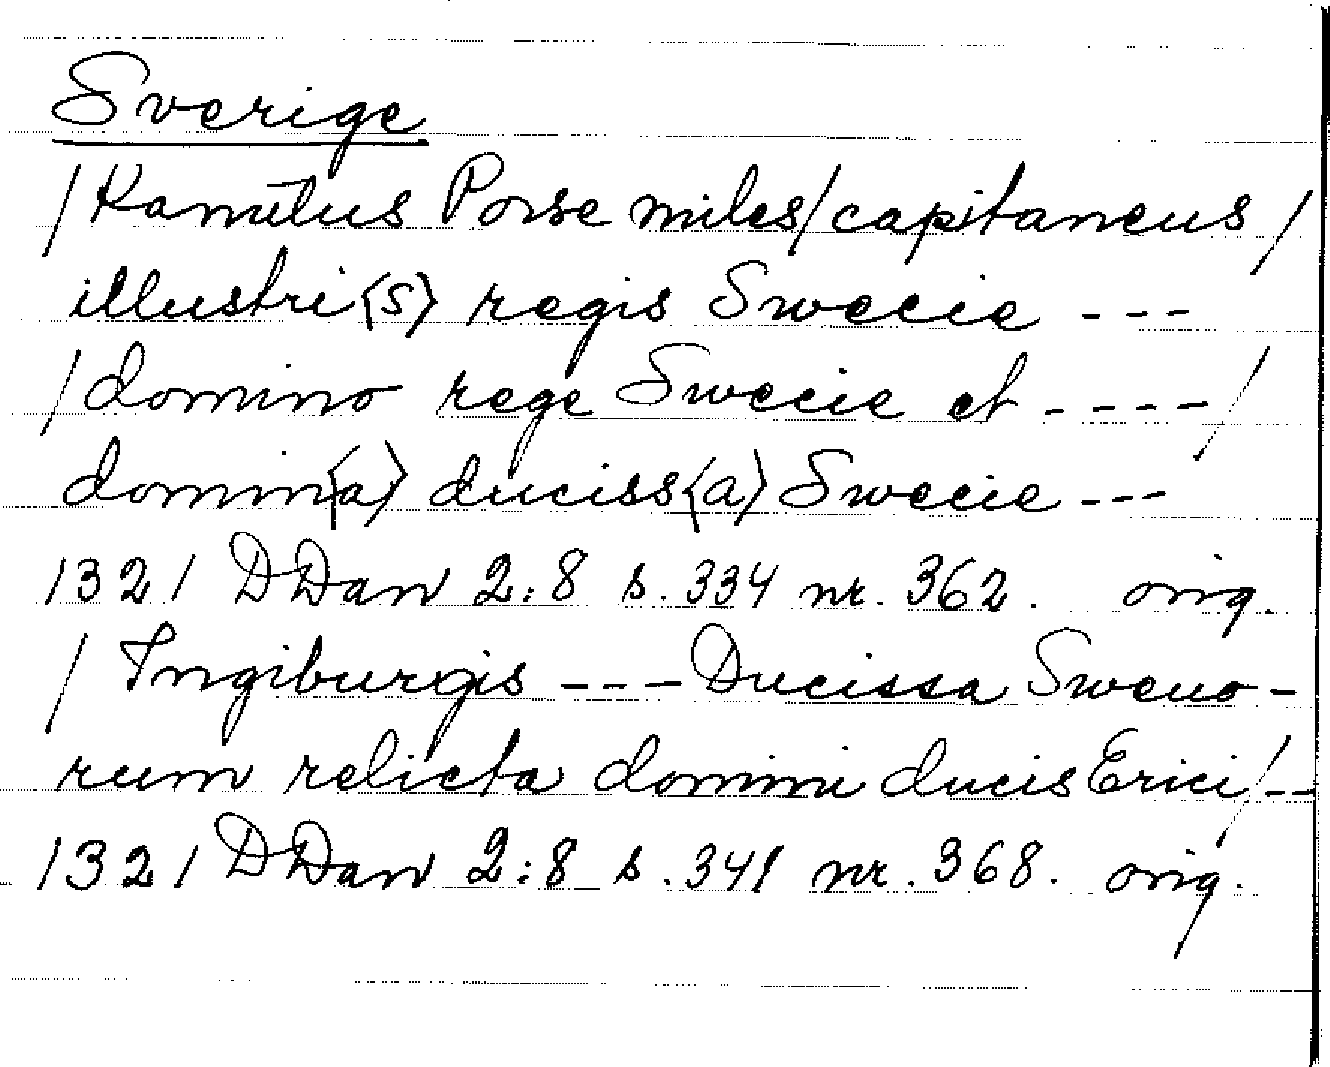 Sverige
/Kanutus Porse miles/capitaneus/
illustri⟨s⟩ regis Swecie ---
/domino rege Swecie et ----/
domin⟨a⟩ duciss⟨a⟩ Swecie ---
1321 DDan 2:8 s. 334 nr. 362. orig.
/ Ingiburgis --- Ducissa Sweuo-
rum relicta domini ducis Erici/--
1321 DDan 2:8 s. 341 nr. 368. orig.